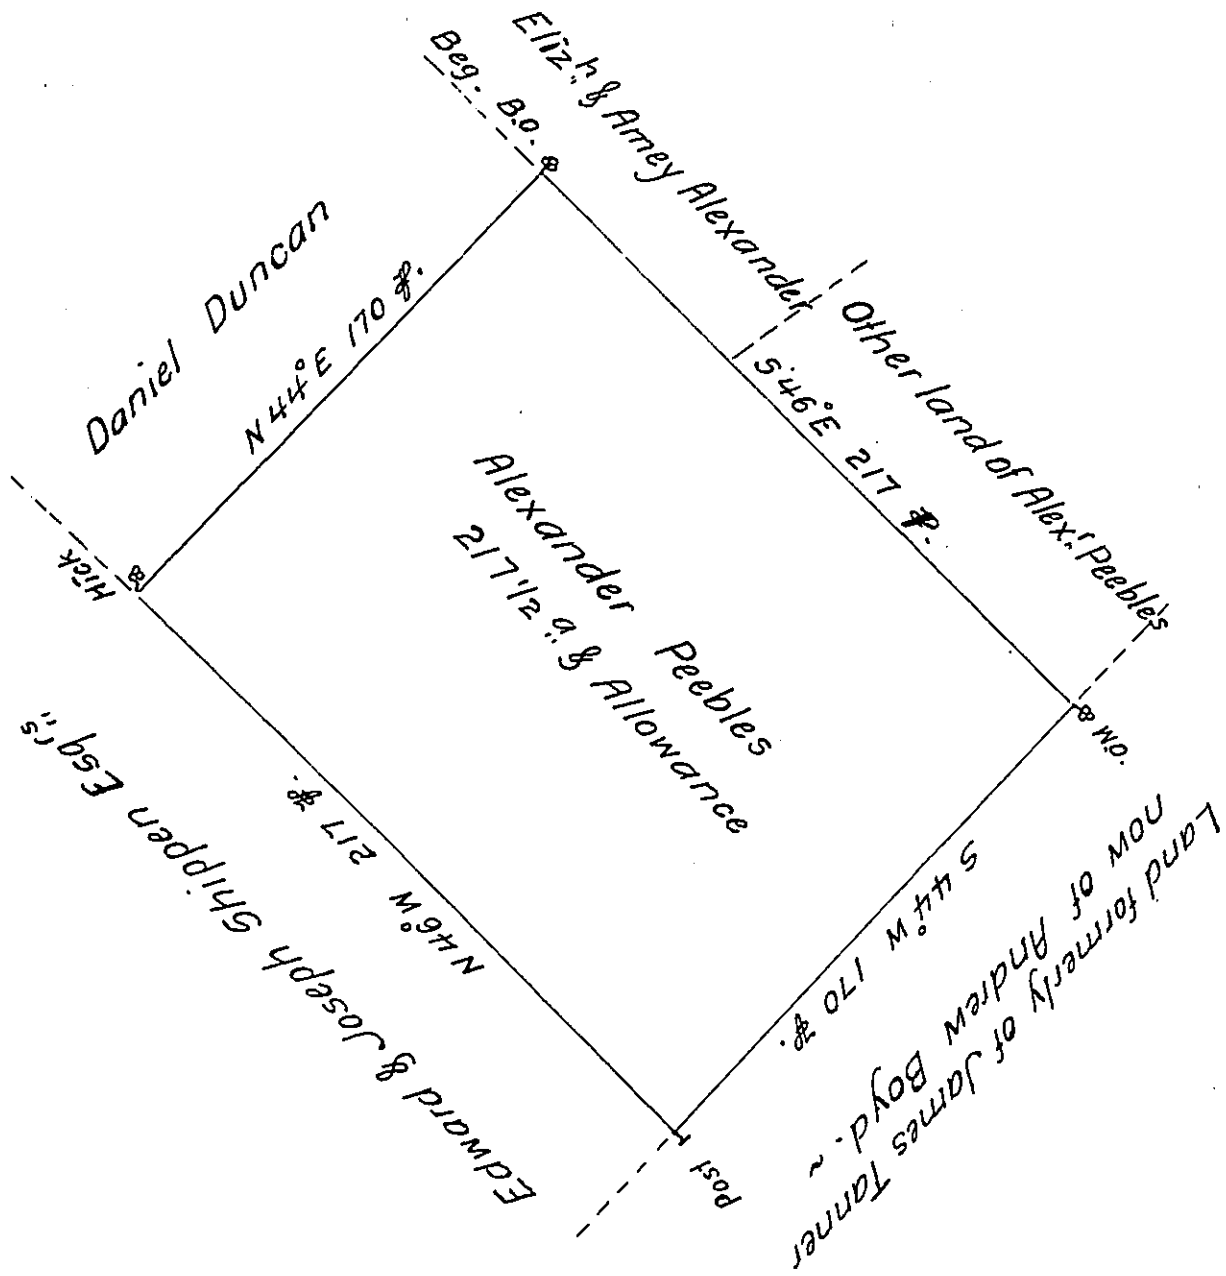 Beg. B.O.
Eliz.h & Amey Alexander
Daniel Duncan
N 44° E 170 p.
Other land of Alex.r Peebles
S 46° E 217 p.
Alexander Peebles
217 1/2 a & Allowance
Hick
W.O.
Edward & Joseph Shippen Esqrs
N 46° W 217 p.
S 44° W 170 p.
Land formerly of James Tanner
now of Andrew Boyd. ~
Post